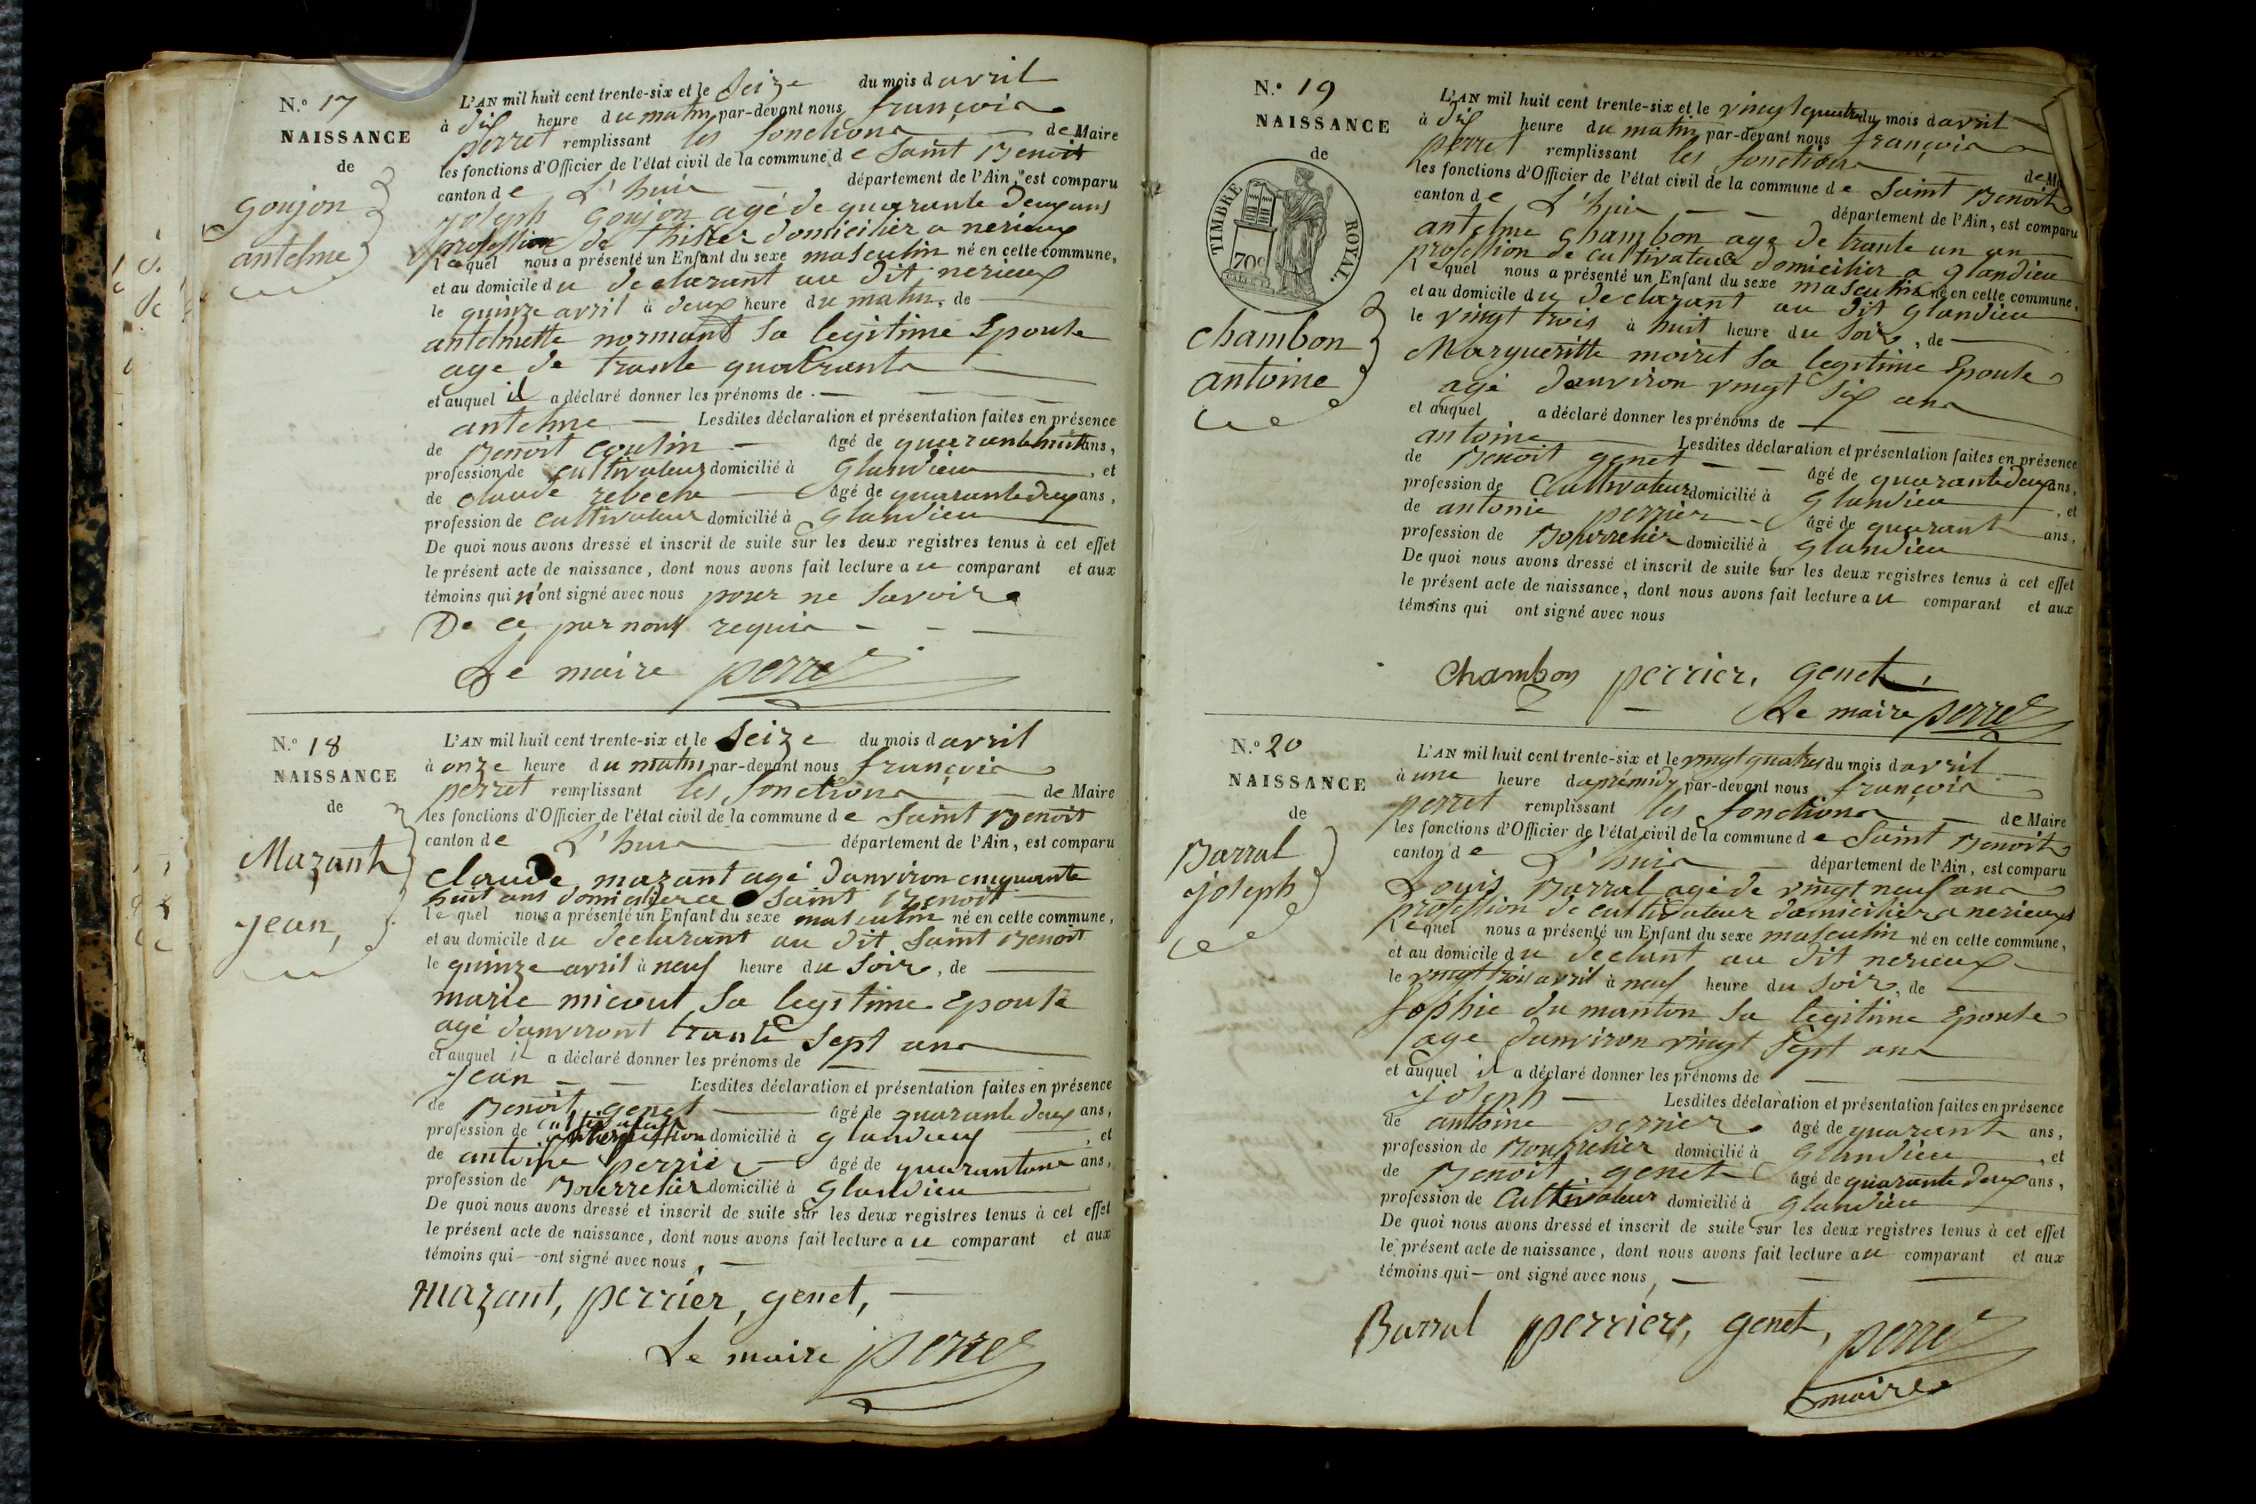 N.º 17
NAISSANCE
de
goujon
antelme
L'AN mil huit cent trente-six et le Seize du mois d avril
à dix heure du matin par-devant nous françois
perret remplissant les fonctions de Maire
les fonctions d'Officier de l'état civil de la commune de Saint Benoit
canton de L'huis département de l'Ain, est comparu
joseph goujon agé de quarante deux ans
profession de domicilier a nerieux
lequel nous a présenté un Enfant du sexe masculin né en cette commune,
et au domicile du declarant au dit nerieux
le quinze avril à deux heure du matin, de
antelmette normand Sa legitime Epouse
age de trante quatrants
et auquel il a déclaré donner les prénoms de
antelme Lesdites déclaration et présentation faites en présence
de Benoit coulin âgé de quarante huit ans,
profession de cultivateur domicilié à glandieu, et
de claude rebeche âgé de quarante deux ans,
profession de cultivateur domicilié à glandieu
De quoi nous avons dressé et inscrit de suite sur les deux registres tenus à cet effet
le présent acte de naissance, dont nous avons fait lecture au comparant et aux
témoins qui n'ont signé avec nous pour ne Savoir
De ce par nous requis
Le maire perret
N.º 18
NAISSANCE
de
Mazant
jean,
L'AN mil huit cent trente-six et le Seize du mois d avril
à onze heure du matin par-devant nous françois
perret remplissant les fonctions de Maire
les fonctions d'Officier de l'état civil de la commune de Saint Benoit
canton de L'huis département de l'Ain, est comparu
claude mazant agé d'anviron cinquante
huit ans domicilier a Saint Benoit
lequel nous a présenté un Enfant du sexe masculin né en cette commune,
et au domicile du declarant au dit Saint Benoit
le quinze avril à neuf heure du Soir, de
marie micout Sa legitime Epouse
agé d'anviront trante Sept ans
et auquel il a déclaré donner les prénoms de
jean Lesdites déclaration et présentation faites en présence
de Benoit genet âgé de quarante deux ans,
profession de cultivateur domicilié à glandieu, et
de antoine perrier âgé de quarantune ans,
profession de Bourrelier domicilié à glandieu
De quoi nous avons dressé et inscrit de suite sur les deux registres tenus à cet effet
le présent acte de naissance, dont nous avons fait lecture au comparant et aux
témoins qui ont signé avec nous,
mazant, perrier, genet,
Le maire perret
N.º 19
NAISSANCE
de
TIMBRE ROYAL.
70c
chambon
antoine
L'AN mil huit cent trente-six et le vingt quatre du mois d avril
à dix heure du matin par-devant nous françois
perret remplissant les fonctions de M
les fonctions d'Officier de l'état civil de la commune de Saint Benoit
canton de L'huis département de l'Ain, est comparu
antelme chambon age de trante un an
profession de cultivateur domicilier a glandieu
lequel nous a présenté un Enfant du sexe masculin né en cette commune,
et au domicile du declarant au dit glandieu
le vingt trois à huit heure du Soir, de
Margueritte moiret Sa legitime Epouse
agé d'anviron vingt Six ans
et auquel a déclaré donner les prénoms de
antoine Lesdites déclaration et présentation faites en présence
de Benoit genet âgé de quarante deux ans,
profession de Cultivateur domicilié à glandieu, et
de antonie perrier âgé de quarant ans,
profession de Bourrelier domicilié à glandieu
De quoi nous avons dressé et inscrit de suite sur les deux registres tenus à cet effet
le présent acte de naissance, dont nous avons fait lecture au comparant et aux
témoins qui ont signé avec nous
Chambon perrier, genet,
Le maire perret
N.º 20
NAISSANCE
de
Barral
joseph
L'AN mil huit cent trente-six et le vingt quatre du mois d avril
à une heure d aprémidy par-devant nous françois
perret remplissant les fonctions de Maire
les fonctions d'Officier de l'état civil de la commune de Saint Benoit
canton de L'huis département de l'Ain, est comparu
Louis Barral agé de vingt neuf ans
profession de cultivateur domicilier a nerieux
lequel nous a présenté un Enfant du sexe masculin né en cette commune,
et au domicile du declant au dit nerieux
le vingt trois avril à neuf heure du Soir, de
Sophie du manton Sa legitime Epouse
age d'anviron vingt Sept ans
et auquel il a déclaré donner les prénoms de
joseph Lesdites déclaration et présentation faites en présence
de antoine perrier âgé de quarant ans,
profession de Bourrelier domicilié à glandieu, et
de Benoit genet âgé de quarante deux ans,
profession de Cultivateur domicilié à glandieu
De quoi nous avons dressé et inscrit de suite sur les deux registres tenus à cet effet
le présent acte de naissance, dont nous avons fait lecture au comparant et aux
témoins qui ont signé avec nous,
Barral perrier, genet, perret
maire